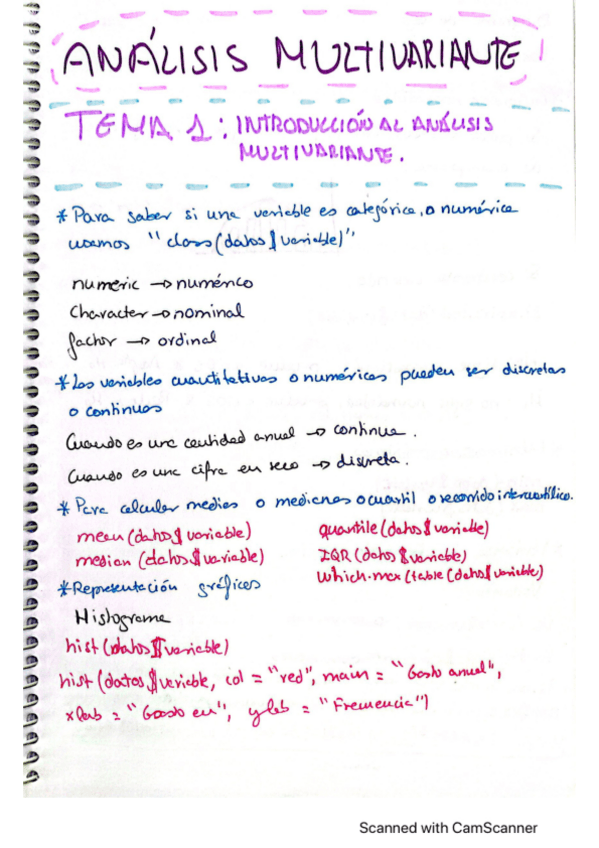 ANÁLISIS MULTIVARIANTE
TEMA 1: INTRODUCCIÓN AL ANÁLISIS
MULTIVARIANTE.
* Para saber si una variable es categórica, o numérica
usamos "class(datos$variable)"
numeric → numérico
Character → nominal
factor → ordinal
* Las variables cuantitativas o numéricas pueden ser discretas
o continuas
Cuando es una cantidad anual → continua.
Cuando es una cifra en seco → discreta.
* Para calcular medias o medianas o cuartil o recorrido intercuartílico.
mean(datos$variable)
median(datos$variable)
quantile(datos$variable)
IQR(datos$variable)
which.max(table(datos$variable)
* Representación gráficas
Histograma
hist(datos$variable)
hist(datos$variable, col = "red", main = "Gasto anual",
xlab = "Gasto en", ylab = "Frecuencia")
Scanned with CamScanner